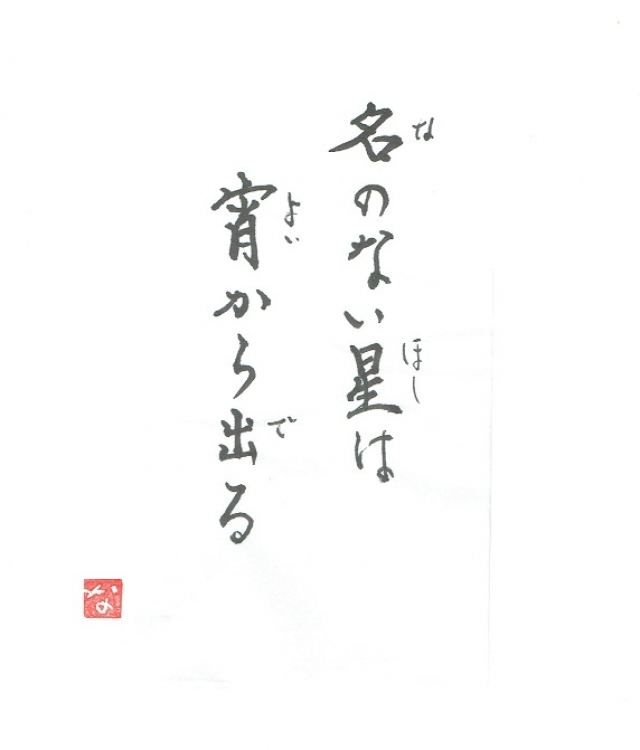 名のない星は
な
ほし
宵から出る
よい
で
な